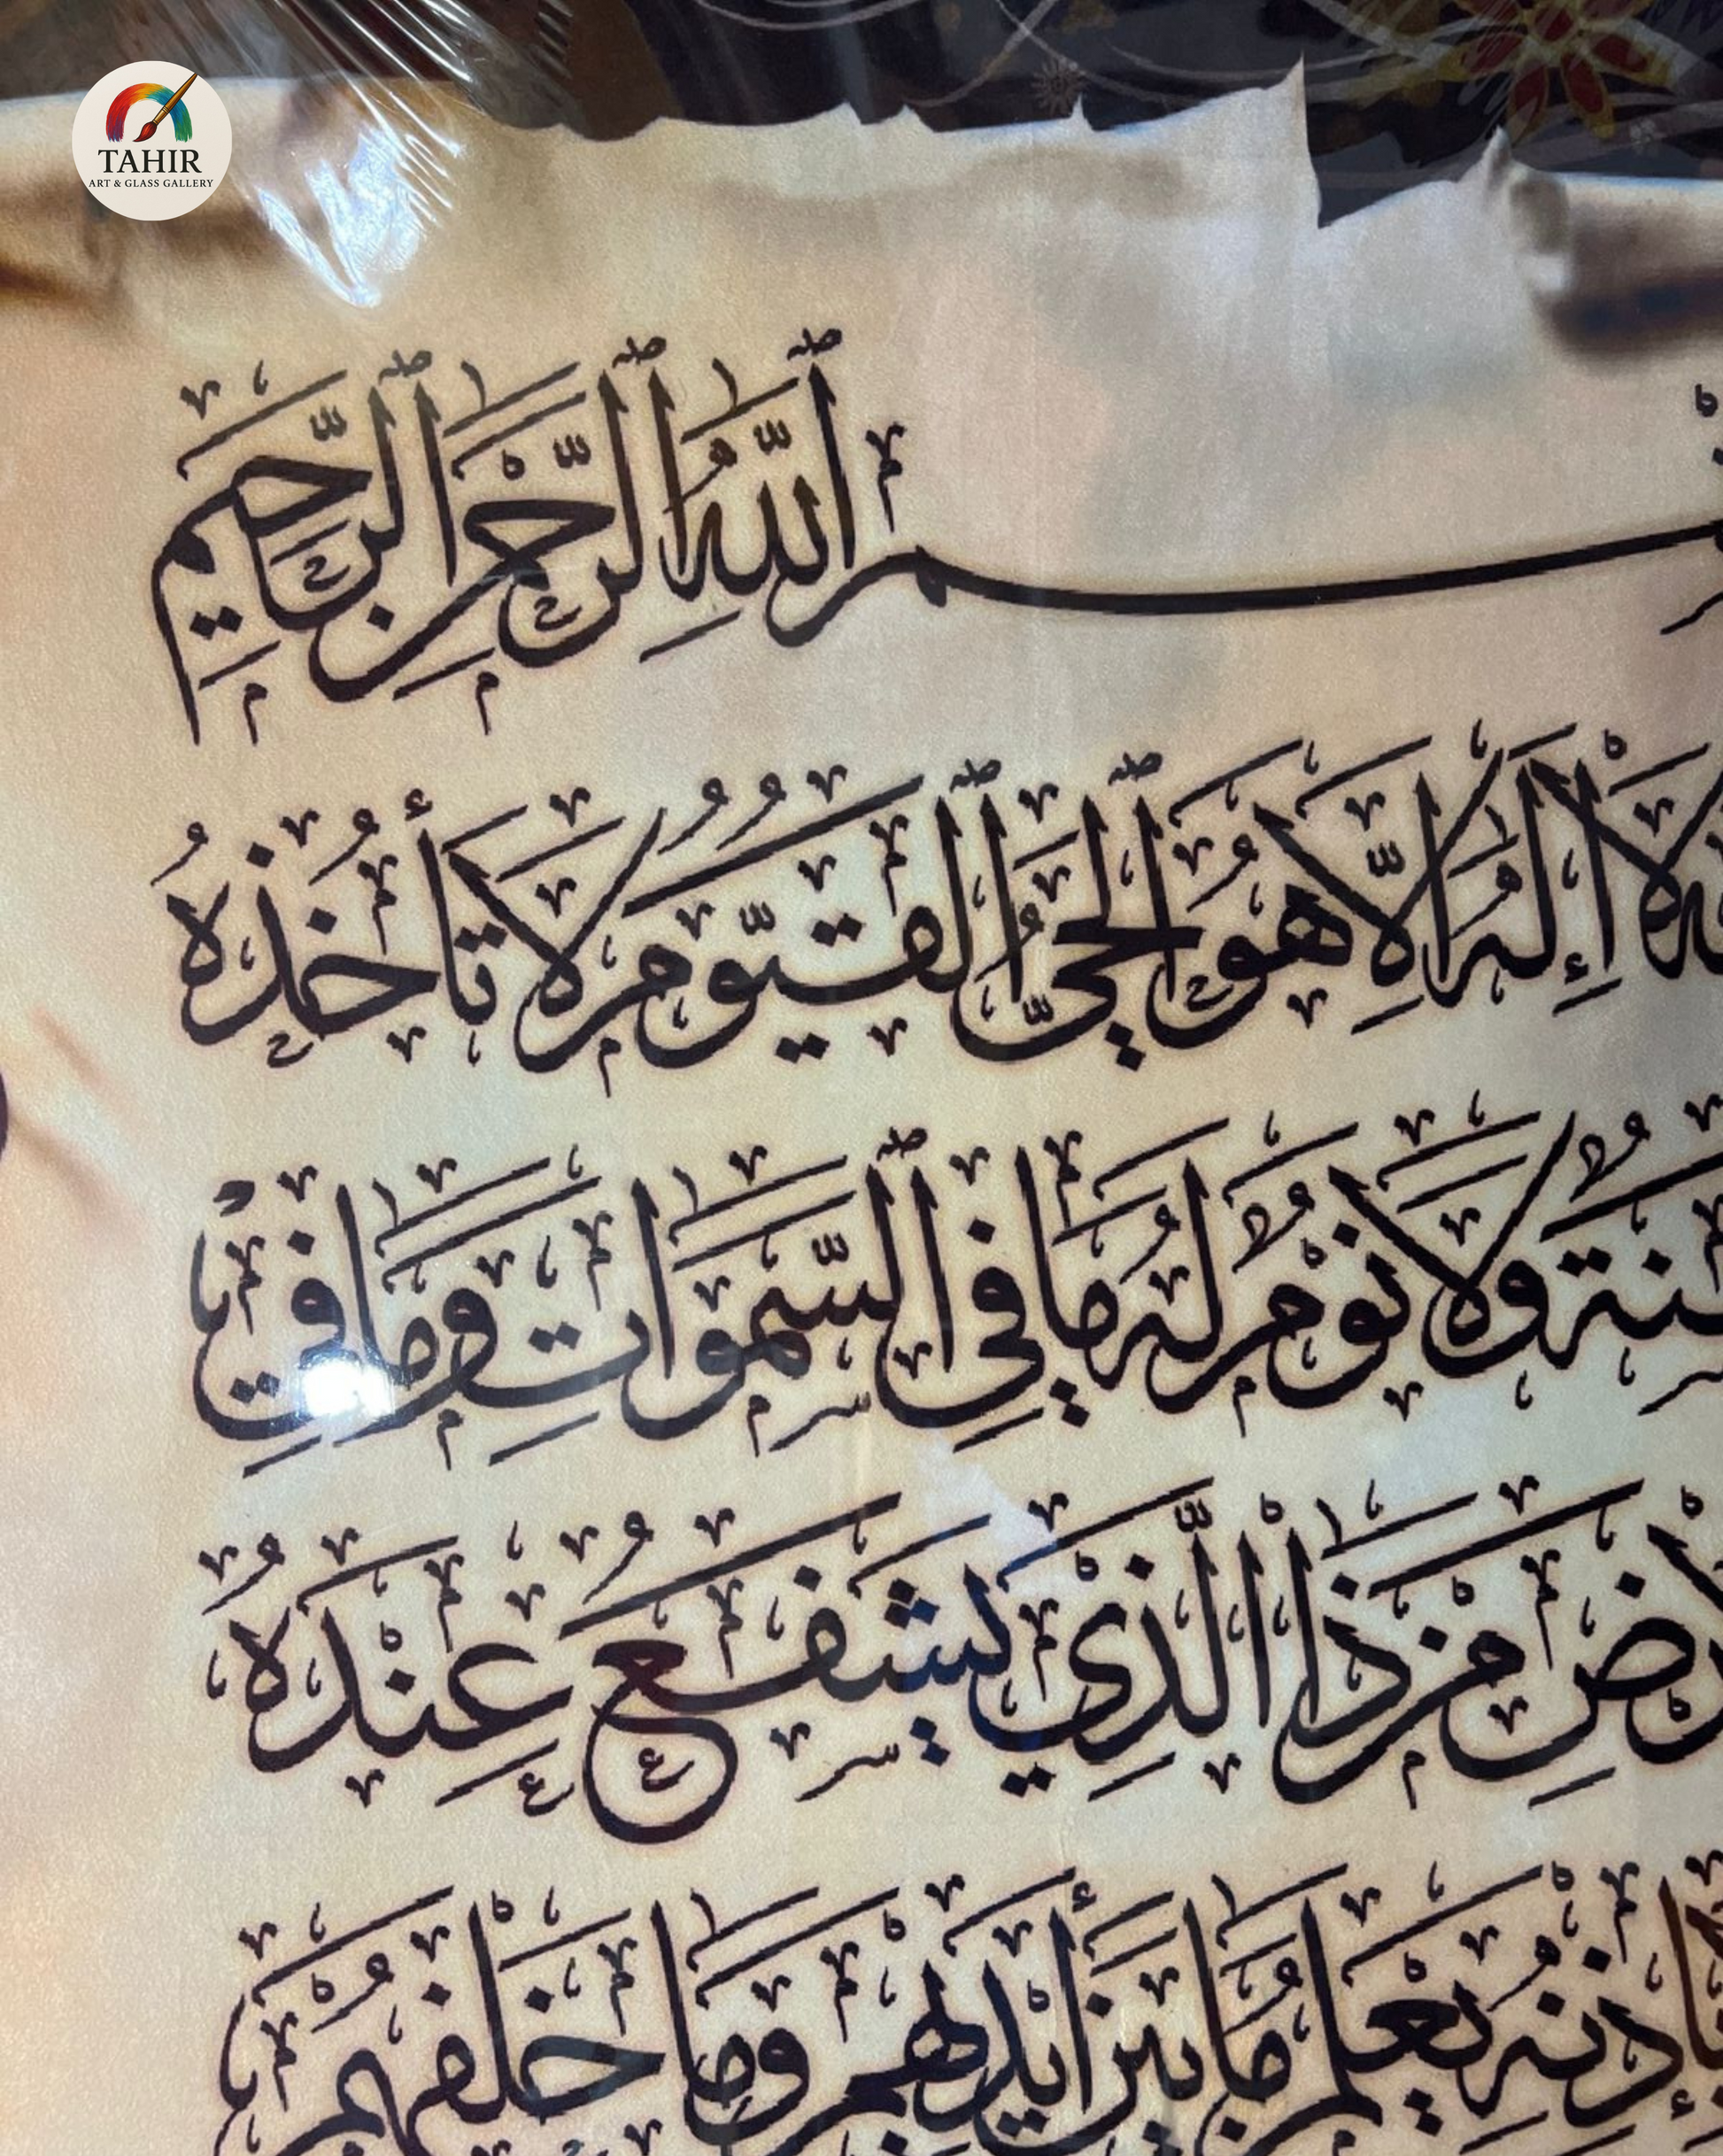 TAHIR
ART & GLASS GALLERY
ٱللَّهِ ٱلرَّحْمَٰنِ ٱلرَّحِيمِ
لَآ إِلَٰهَ إِلَّا هُوَ ٱلْحَيُّ ٱلْقَيُّومُ لَا تَأْخُذُهُ
وَلَا نَوْمٌ لَهُ مَا فِي ٱلسَّمَٰوَاتِ وَمَا فِي
مَنْ ذَا الَّذِي يَشْفَعُ عِنْدَهُ
بِإِذْنِهِ يَعْلَمُ مَا بَيْنَ أَيْدِيهِمْ وَمَا خَلْفَهُمْ